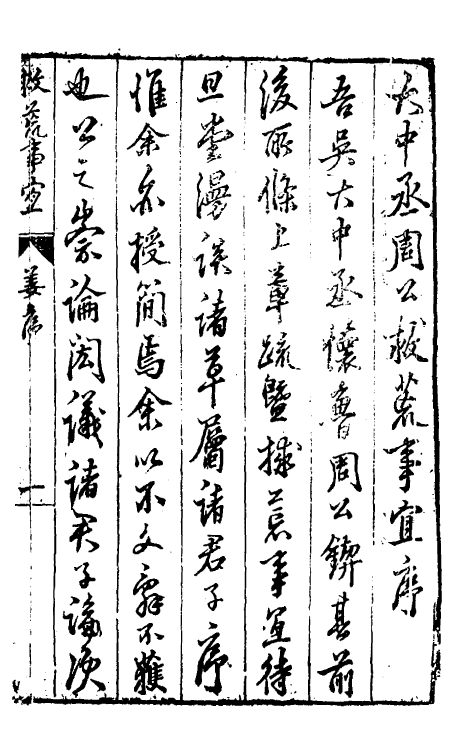 大中丞周公救荒事宜序
吾吳大中丞懷魯周公鍥其前
後所條上章疏暨捄荒事宜待
旦堂漫談諸草屬諸君子序
惟余亦授簡焉余以不文辭不獲
也公之崇論閎議諸君子論次
救荒事宜
姜序
一